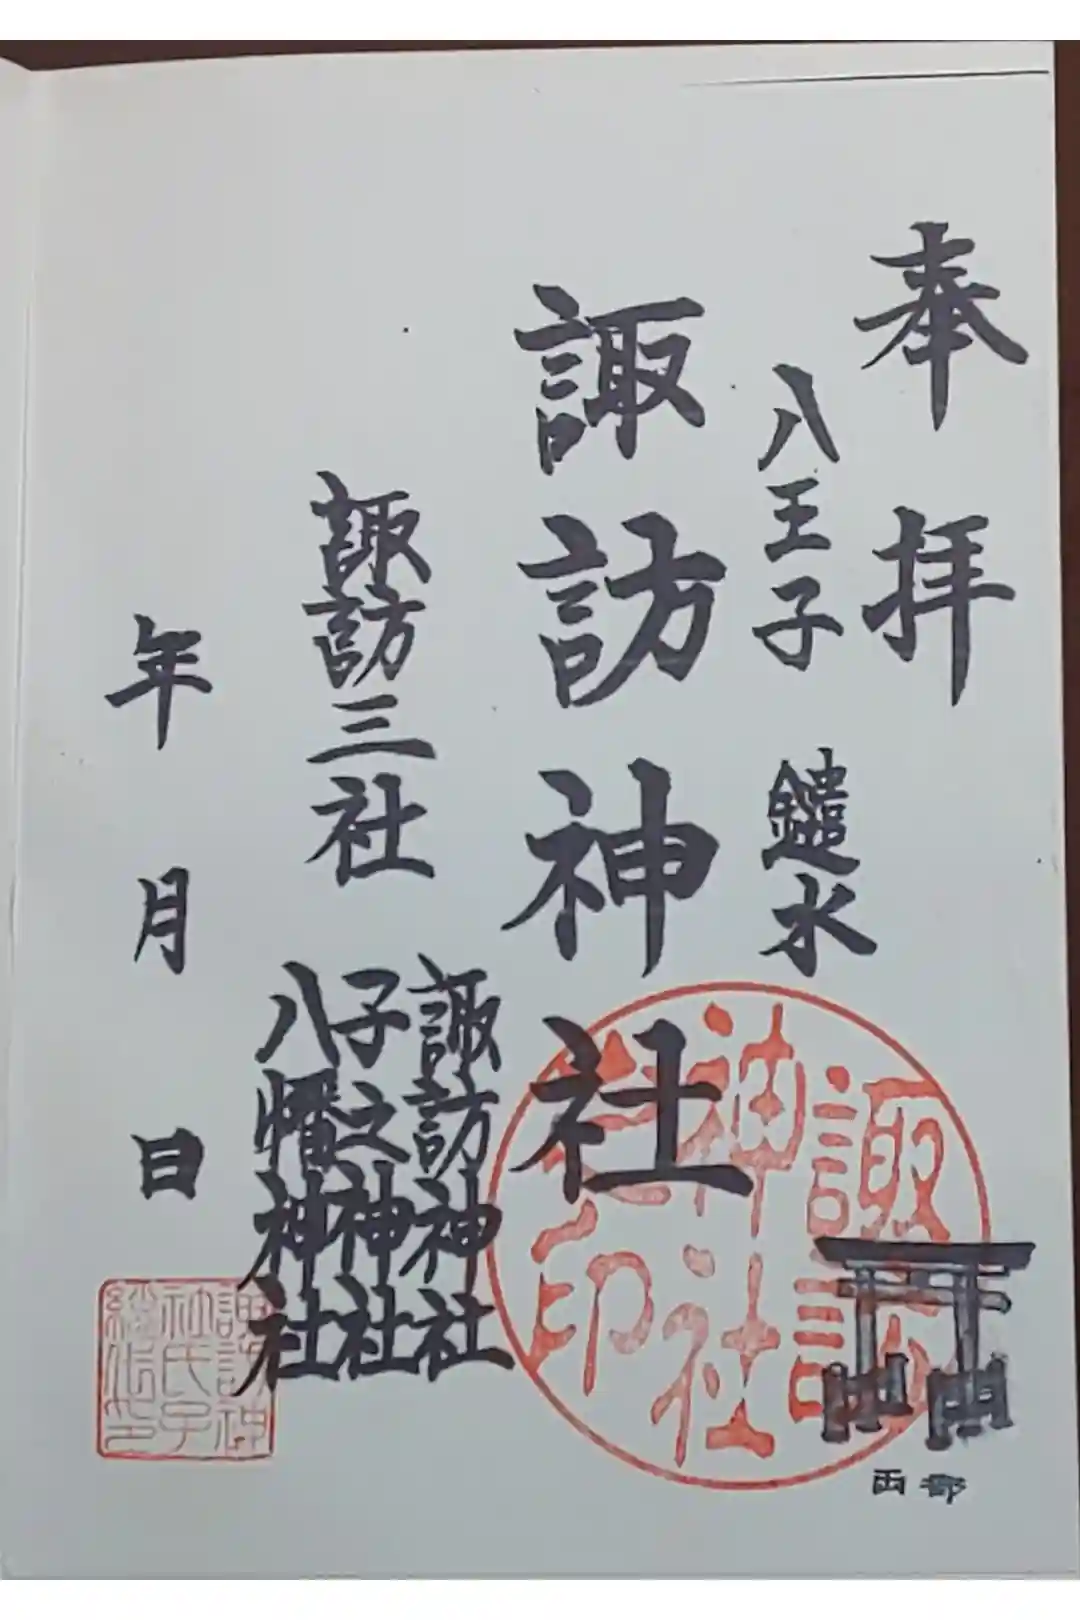 奉拝
八王子 鑓水
諏訪神社
諏訪三社
諏訪神社
子之神社
八幡神社
年 月 日
諏訪
神社
之印
両部
諏訪神
社氏子
総代印